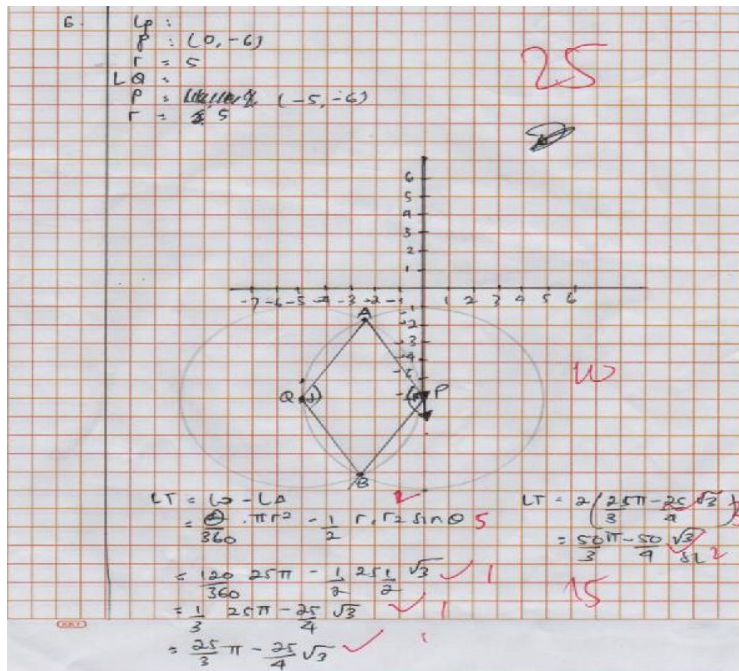 6. Lp :
P : (0, -6)
r = 5
LQ =
P = (-5, -6)
r = 5
25
6
5
4
3
2
1
-7 -6 -5 -4 -3 -2 -1 1 2 3 4 5 6
A
-2
-3
-4
-5
Q P
B
10
LT = - LΔ 2
= θ/360 . πr² - 1/2 r. r2 sin θ 5
= 120/360 25π - 1/2 25 1/2 √3 ✓ 1
= 1/3 25π - 25/4 √3 ✓ 1
= 25/3 π - 25/4 √3 ✓
LT = 2 (25π/3 - 25/4 √3)
= 50/3 π - 50/4 √3
SL 2
15